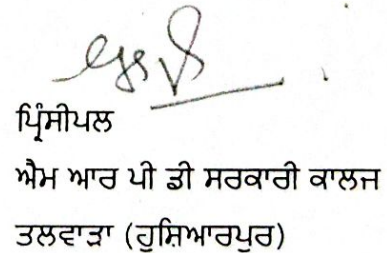 ਪ੍ਰਿੰਸੀਪਲ
ਐਮ ਆਰ ਪੀ ਡੀ ਸਰਕਾਰੀ ਕਾਲਜ
ਤਲਵਾੜਾ (ਹੁਸ਼ਿਆਰਪੁਰ)